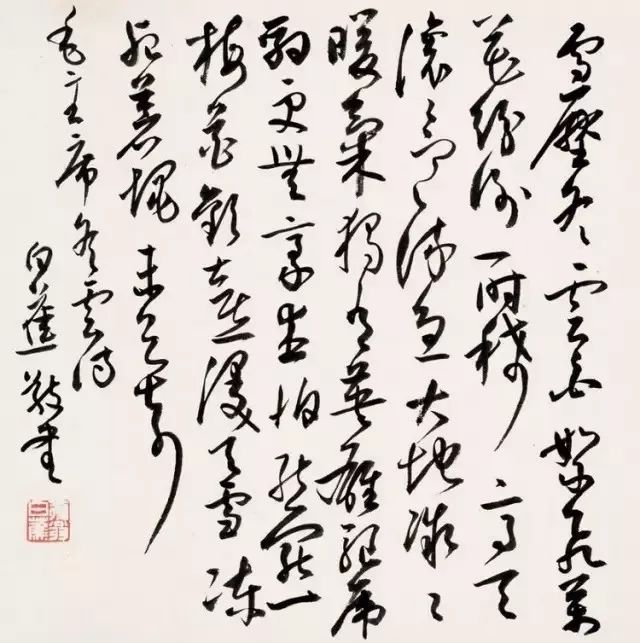 雪壓冬雲白絮飛萬
花紛謝一時稀高天
滾滾寒流急大地微微
暖氣獨有英雄驅虎
豹更無豪杰怕熊羆
梅花歡喜漫天雪凍
死蒼蠅未足奇
毛主席冬雲詩
白蕉敬書